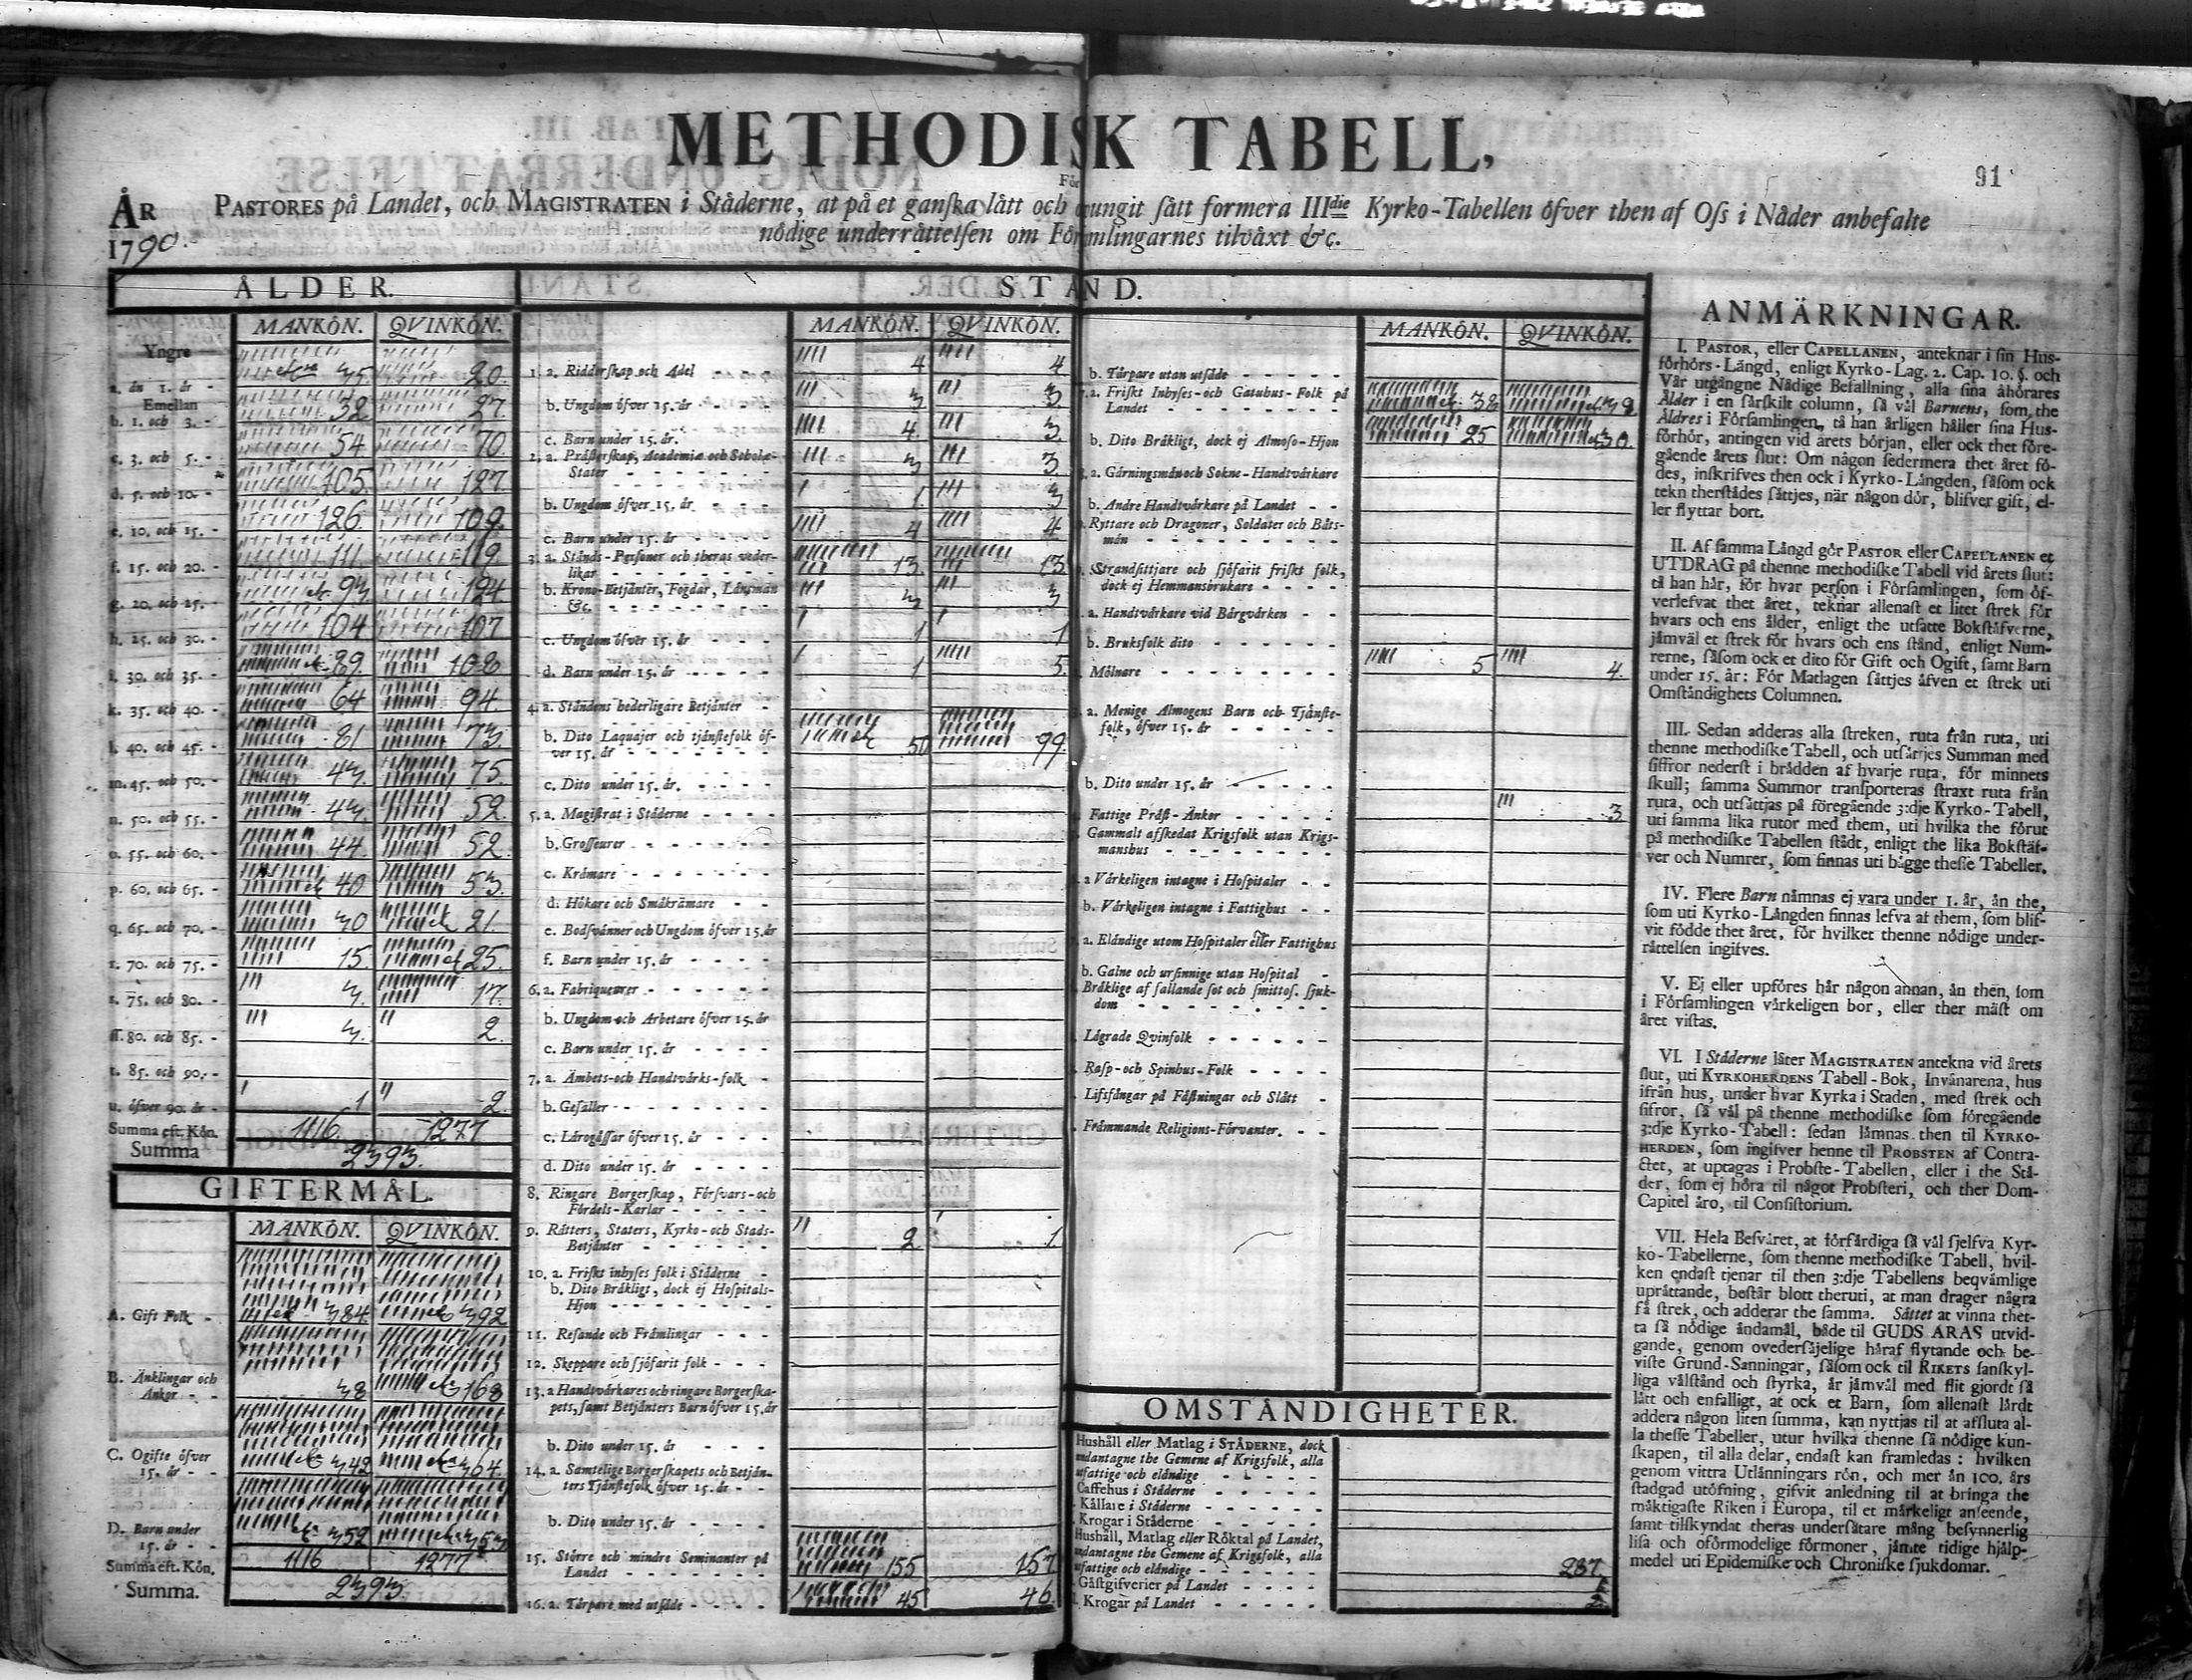 METHODISK TABELL,
För
91
ÅR
1790.
PASTORES på Landet, och MAGISTRATEN i Ståderne, at på et ganska lått och tvungit sått formera IIIdie Kyrko-Tabellen öfver then af Oss i Nåder anbefalte
nödige underråttelsen om Församlingarnes tilvåxt &c.
ÅLDER.
MANKÖN. QVINKÖN.
Yngre
a. än 1. år - 35. 20.
Emellan
b. 1. och 3. - 38. 27.
c. 3. och 5. - 54 70.
d. 5. och 10. - 105. 127.
e. 10. och 15. - 126. 109.
f. 15. och 20. - 111. 119.
g. 20. och 25. - 93. 124
h. 25. och 30. - 104 107
i. 30. och 35. - 89. 108
k. 35. och 40. - 64 94.
l. 40. och 45. - 81 73.
m. 45. och 50. - 43. 75.
n. 50. och 55. - 43. 52.
o. 55. och 60. - 44. 52.
p. 60. och 65. - 40 53.
q. 65. och 70. - 30 21.
r. 70. och 75. - 15. 25.
s. 75. och 80. - 3. 17.
ff. 80. och 85. - 3. 2.
t. 85. och 90. -
u. öfver 90. år - 1 2.
Summa eft. Kön. 1116. 1277
Summa 2393.
GIFTERMÅL.
MANKÖN. QVINKÖN.
A. Gift Folk - 384. 392
B. Änklingar och
Änkor - - 38 168
C. Ogifte öfver
15. år - - 342 364.
D. Barn under
15. år - - 352 353
Summa eft. Kön. 1116 1277
Summa. 2393.
STÅND.
MANKÖN. QVINKÖN.
1. a. Ridderskap och Adel - - 4 4
b. Ungdom öfver 15. år - - - - 3 3.
c. Barn under 15. år. 4. 3.
2. a. Pråsterskap, Academiæ och Scholæ-
Stater - - - - - 3 3.
b. Ungdom öfver 15. år - - - 1. 3
c. Barn under 15. år - - - 4 4
3. a. Stånds-Personer och theras veder-
likar - - - - - 13. 13.
b. Krono-Betjänter, Fogdar, Länsmän
&c. - - - - - 3 3
c. Ungdom öfver 15. år - - - 1 1
d. Barn under 15. år - - - - 1 5.
4. a. Ståndens hederligare Betjänter -
b. Dito Laquajer och tjänstefolk öf-
ver 15. år - - - - - 50 99.
c. Dito under 15. år. - - - -
5. a. Magistrat i Ståderne - - - -
b. Grosseurer - - - - - -
c. Krämare - - - - - -
d. Hökare och Småkrämare - -
e. Bodsvänner och Ungdom öfver 15. år
f. Barn under 15. år - - - -
6. a. Fabriqueurer - - - - -
b. Ungdom och Arbetare öfver 15. år
c. Barn under 15. år - - - -
7. a. Ämbets-och Handtvårks-folk -
b. Gesäller - - - - - -
c. Lärogåssar öfver 15. år - - -
d. Dito under 15. år - - - -
8. Ringare Borgerskap, Försvars-och
Fördels-Karlar - - - - -
9. Råtters, Staters, Kyrko-och Stads-
Betjänter - - - - - 2 1
10. a. Friskt inhyses folk i Ståderne -
b. Dito Bråkligt, dock ej Hospitals-
Hjon - - - - - -
11. Resande och Främlingar - - -
12. Skeppare och sjöfarit folk - - -
13. a Handtvårkares och ringare Borgerska-
pets, samt Betjänters Barn öfver 15. år
b. Dito under 15. år - - -
14. a. Samtelige Borgerskapets och Betjän-
ters Tjänstefolk öfver 15. år - -
b. Dito under 15. år - - - -
15. Större och mindre Seminanter på
Landet - - - - - 155 157
16. a. Tårpare med utsäde - - - - 45 46.
MANKÖN. QVINKÖN.
b. Tårpare utan utsäde - - - -
a. Friskt Inhyses-och Gatuhus-Folk på
Landet - - - - - - 38
b. Dito Bråkligt, dock ej Almoso-Hjon 25 30.
a. Gärningsmän och Sokne-Handtvårkare
b. Andre Handtvårkare på Landet - -
Ryttare och Dragoner, Soldater och Båts-
män - - - - - - -
Strandsittjare och sjöfarit friskt folk,
dock ej Hemmansbrukare - - - -
a. Handtvårkare vid Bårgvårken - -
b. Bruksfolk dito - - - - -
Mölnare - - - - - - 5 4.
a. Menige Almogens Barn och Tjänste-
folk, öfver 15. år - - - - -
b. Dito under 15. år - - - -
Fattige Präst-Änkor - - - - - 3
Gammalt afskedat Krigsfolk utan Krigs-
manshus - - - - - - -
a Vårkeligen intagne i Hospitaler - -
b. Vårkeligen intagne i Fattighus - -
a. Eländige utom Hospitaler eller Fattighus
b. Galne och ursinnige utan Hospital -
Bråklige af fallande sot och smittos. sjuk-
dom - - - - - - -
Lägrade Qvinfolk - - - - - -
Rasp-och Spinhus-Folk - - - -
Lifsfångar på Fästningar och Slått -
Främmande Religions-Förvanter. - -
OMSTÅNDIGHETER.
Hushåll eller Matlag i STÅDERNE, dock
undantagne the Gemene af Krigsfolk, alla
utfattige och eländige - - - - -
Caffehus i Ståderne - - - - -
Kållare i Ståderne - - - - -
Krogar i Ståderne - - - - -
Hushåll, Matlag eller Röktal på Landet,
undantagne the Gemene af Krigsfolk, alla
utfattige och eländige - - - - - 287.
Gåstgifverier på Landet - - - -
Krogar på Landet - - - - - 2.
ANMÄRKNINGAR.
I. PASTOR, eller CAPELLANEN, anteknar i sin Hus-
förhörs-Längd, enligt Kyrko-Lag. 2. Cap. 10. §. och
Vår utgångne Nådige Befallning, alla sina åhörares
Ålder i en särskilt column, så väl Barnens, som the
Äldres i Församlingen, tå han årligen håller sina Hus-
förhör, antingen vid årets början, eller ock thet före-
gående årets slut: Om någon sedermera thet året fö-
des, inskrifves then ock i Kyrko-Längden, såsom ock
tekn therstådes såttjes, når någon dör, blifver gift, el-
ler flyttar bort.
II. Af samma Längd gör PASTOR eller CAPELLANEN et
UTDRAG på thenne methodiske Tabell vid årets slut:
tå han hår, för hvar person i Församlingen, som öf-
verlefvat thet året, teknar allenast et litet strek för
hvars och ens ålder, enligt the utsatte Bokståfverne,
jåmväl et strek för hvars och ens stånd, enligt Num-
rerne, såsom ock et dito för Gift och Ogift, samt Barn
under 15. år: För Matlagen såttjes åfven et strek uti
Omståndighets Columnen.
III. Sedan adderas alla streken, ruta från ruta, uti
thenne methodiske Tabell, och utsåttjes Summan med
siffror nederst i brådden af hvarje ruta, för minnets
skull; samma Summor transporteras straxt ruta från
ruta, och utsåttjas på föregående 3:dje Kyrko-Tabell,
uti samma lika rutor med them, uti hvilka the förut
på methodiske Tabellen stådt, enligt the lika Bokståf-
ver och Numrer, som finnas uti bågge thesse Tabeller.
IV. Flere Barn nåmnas ej vara under 1. år, ån the,
som uti Kyrko-Längden finnas lefva af them, som blif-
vit födde thet året, för hvilket thenne nödige under-
råttelsen ingifves.
V. Ej eller upföres hår någon annan, ån then, som
i Församlingen vårkeligen bor, eller ther måst om
året vistas.
VI. I Ståderne låter MAGISTRATEN antekna vid årets
slut, uti KYRKOHERDENS Tabell-Bok, Invånarena, hus
ifrån hus, under hvar Kyrka i Staden, med strek och
sifror, så vål på thenne methodiske som föregående
3:dje Kyrko-Tabell: sedan låmnas then til KYRKO-
HERDEN, som ingifver henne til PROBSTEN af Contra-
ctet, at uptagas i Probste-Tabellen, eller i the Stå-
der, som ej höra til något Probsteri, och ther Dom-
Capitel åro, til Consistorium.
VII. Hela Besvåret, at förfårdiga så vål sjelfva Kyr-
ko-Tabellerne, som thenne methodiske Tabell, hvil-
ken endast tjenar til then 3:dje Tabellens beqvåmlige
upråttande, består blott theruti, at man drager några
få strek, och adderar the samma. Såttet at vinna thet-
ta så nödige åndamål, både til GUDS ÅRAS utvid-
gande, genom ovedersåjelige håraf flytande och be-
viste Grund-Sanningar, såsom ock til RIKETS sanskyl-
liga vålstånd och styrka, år jåmvål med flit gjordt så
lått och enfalligt, at ock et Barn, som allenast lårdt
addera någon liten summa, kan nyttjas til at afsluta al-
la thesse Tabeller, utur hvilka thenne så nödige kun-
skapen, til alla delar, endast kan framledas: hvilken
genom vittra Utlånningars rön, och mer ån 100. års
stadgad utöfning, gifvit anledning til at bringa the
måktigaste Riken i Europa, til et mårkeligt anseende,
samt tilskyndat theras undersåtare mång besynnerlig
lisa och oförmodelige förmoner, jåmte tidige hjålp-
medel uti Epidemiske och Chroniske sjukdomar.